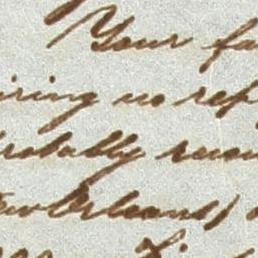 Your fa
iring no rep
robably
New Orleans)